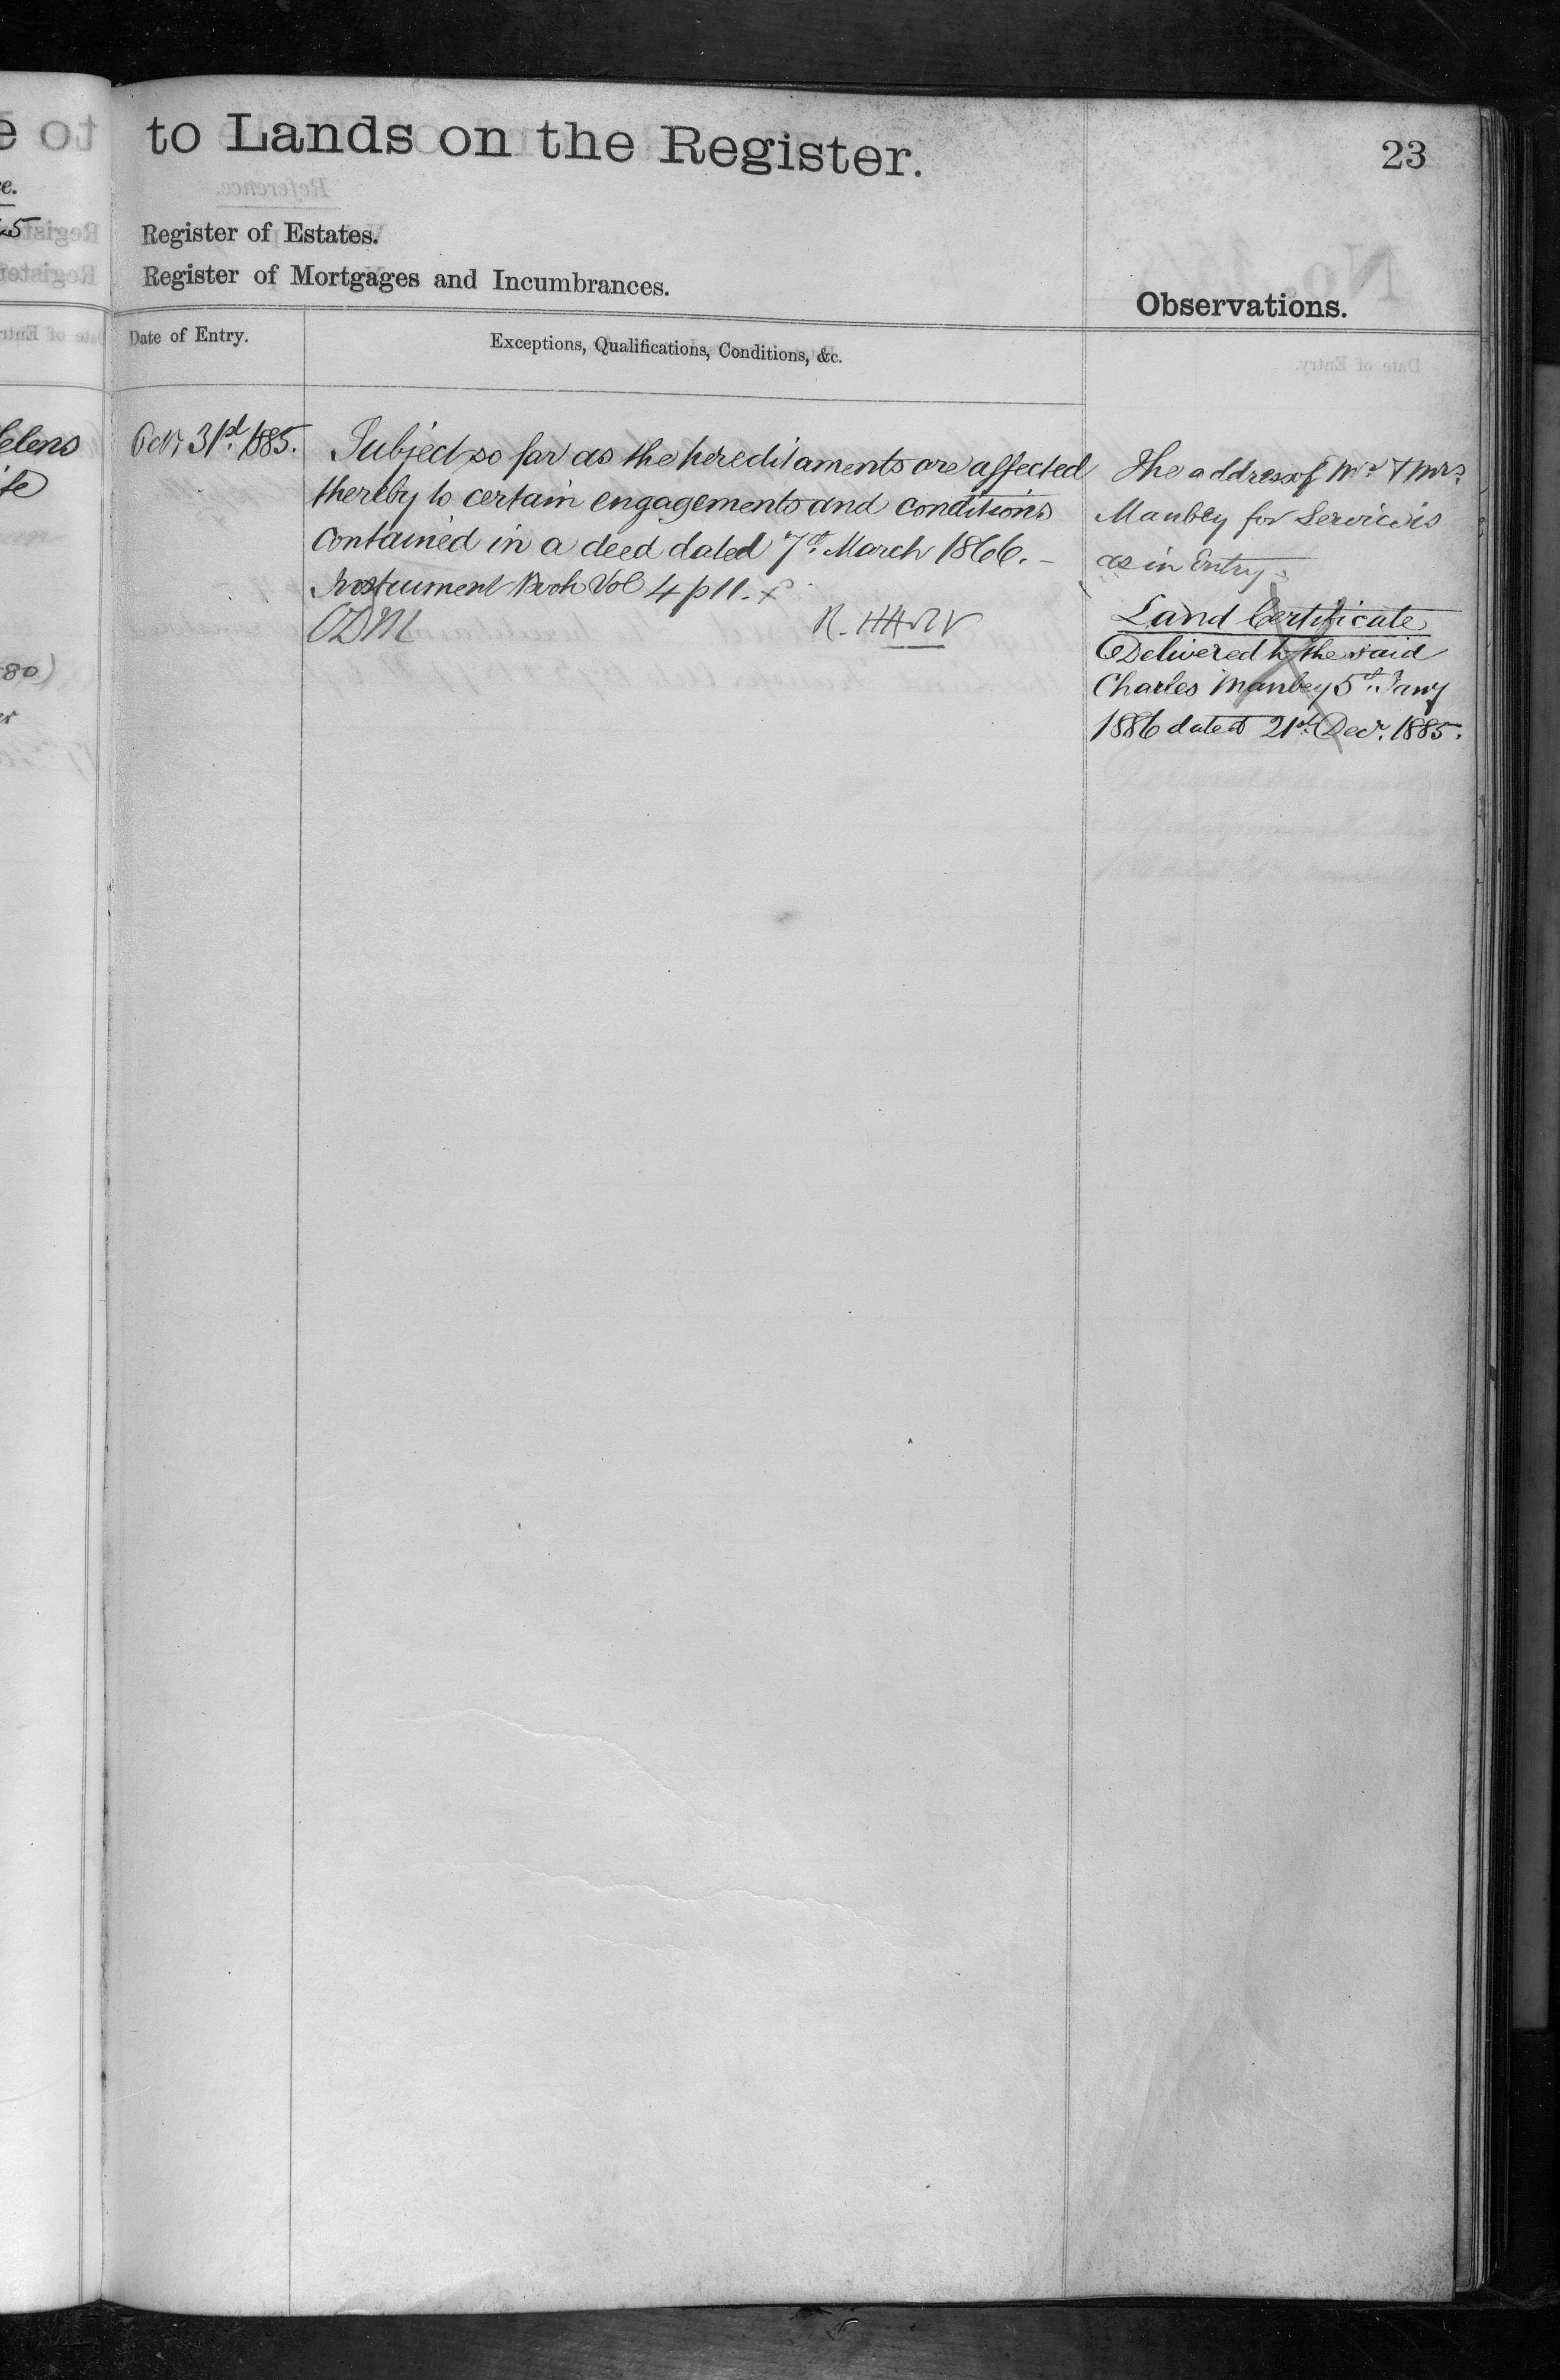 to Lands on the Register.
23
Register of Estates.
Register of Mortgages and Incumbrances.
Observations.
Date of Entry.
Exceptions, Qualifications, Conditions, &c.
Octr 31st 1885.
Subject so far as the hereditaments are affected
thereby to certain engagements and conditions
contained in a deed dated 7th March 1866. -
Instrument Book Vol 4 p 11.
The address of Mr & Mrs
Manbey for Service is
as in Entry.
Land Certificate
Delivered to the said
Charles Manbey 5th Jany
1886 dated 21st Decr. 1885.